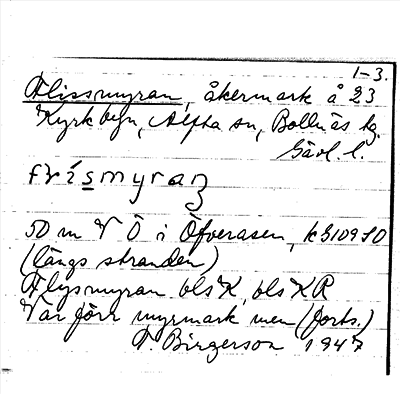 1-3.
Flissmyran, åkermark å 23
Kyrkbyn, Alfta sn, Bollnäs tg.
Gävl. l.
frismyraꝫ
50 m V Ö i Öfverasen, k 310910
(längs stranden)
Flysmyran bls K, bls KR
Var förr myrmark men (forts.)
F. Birgerson 1947